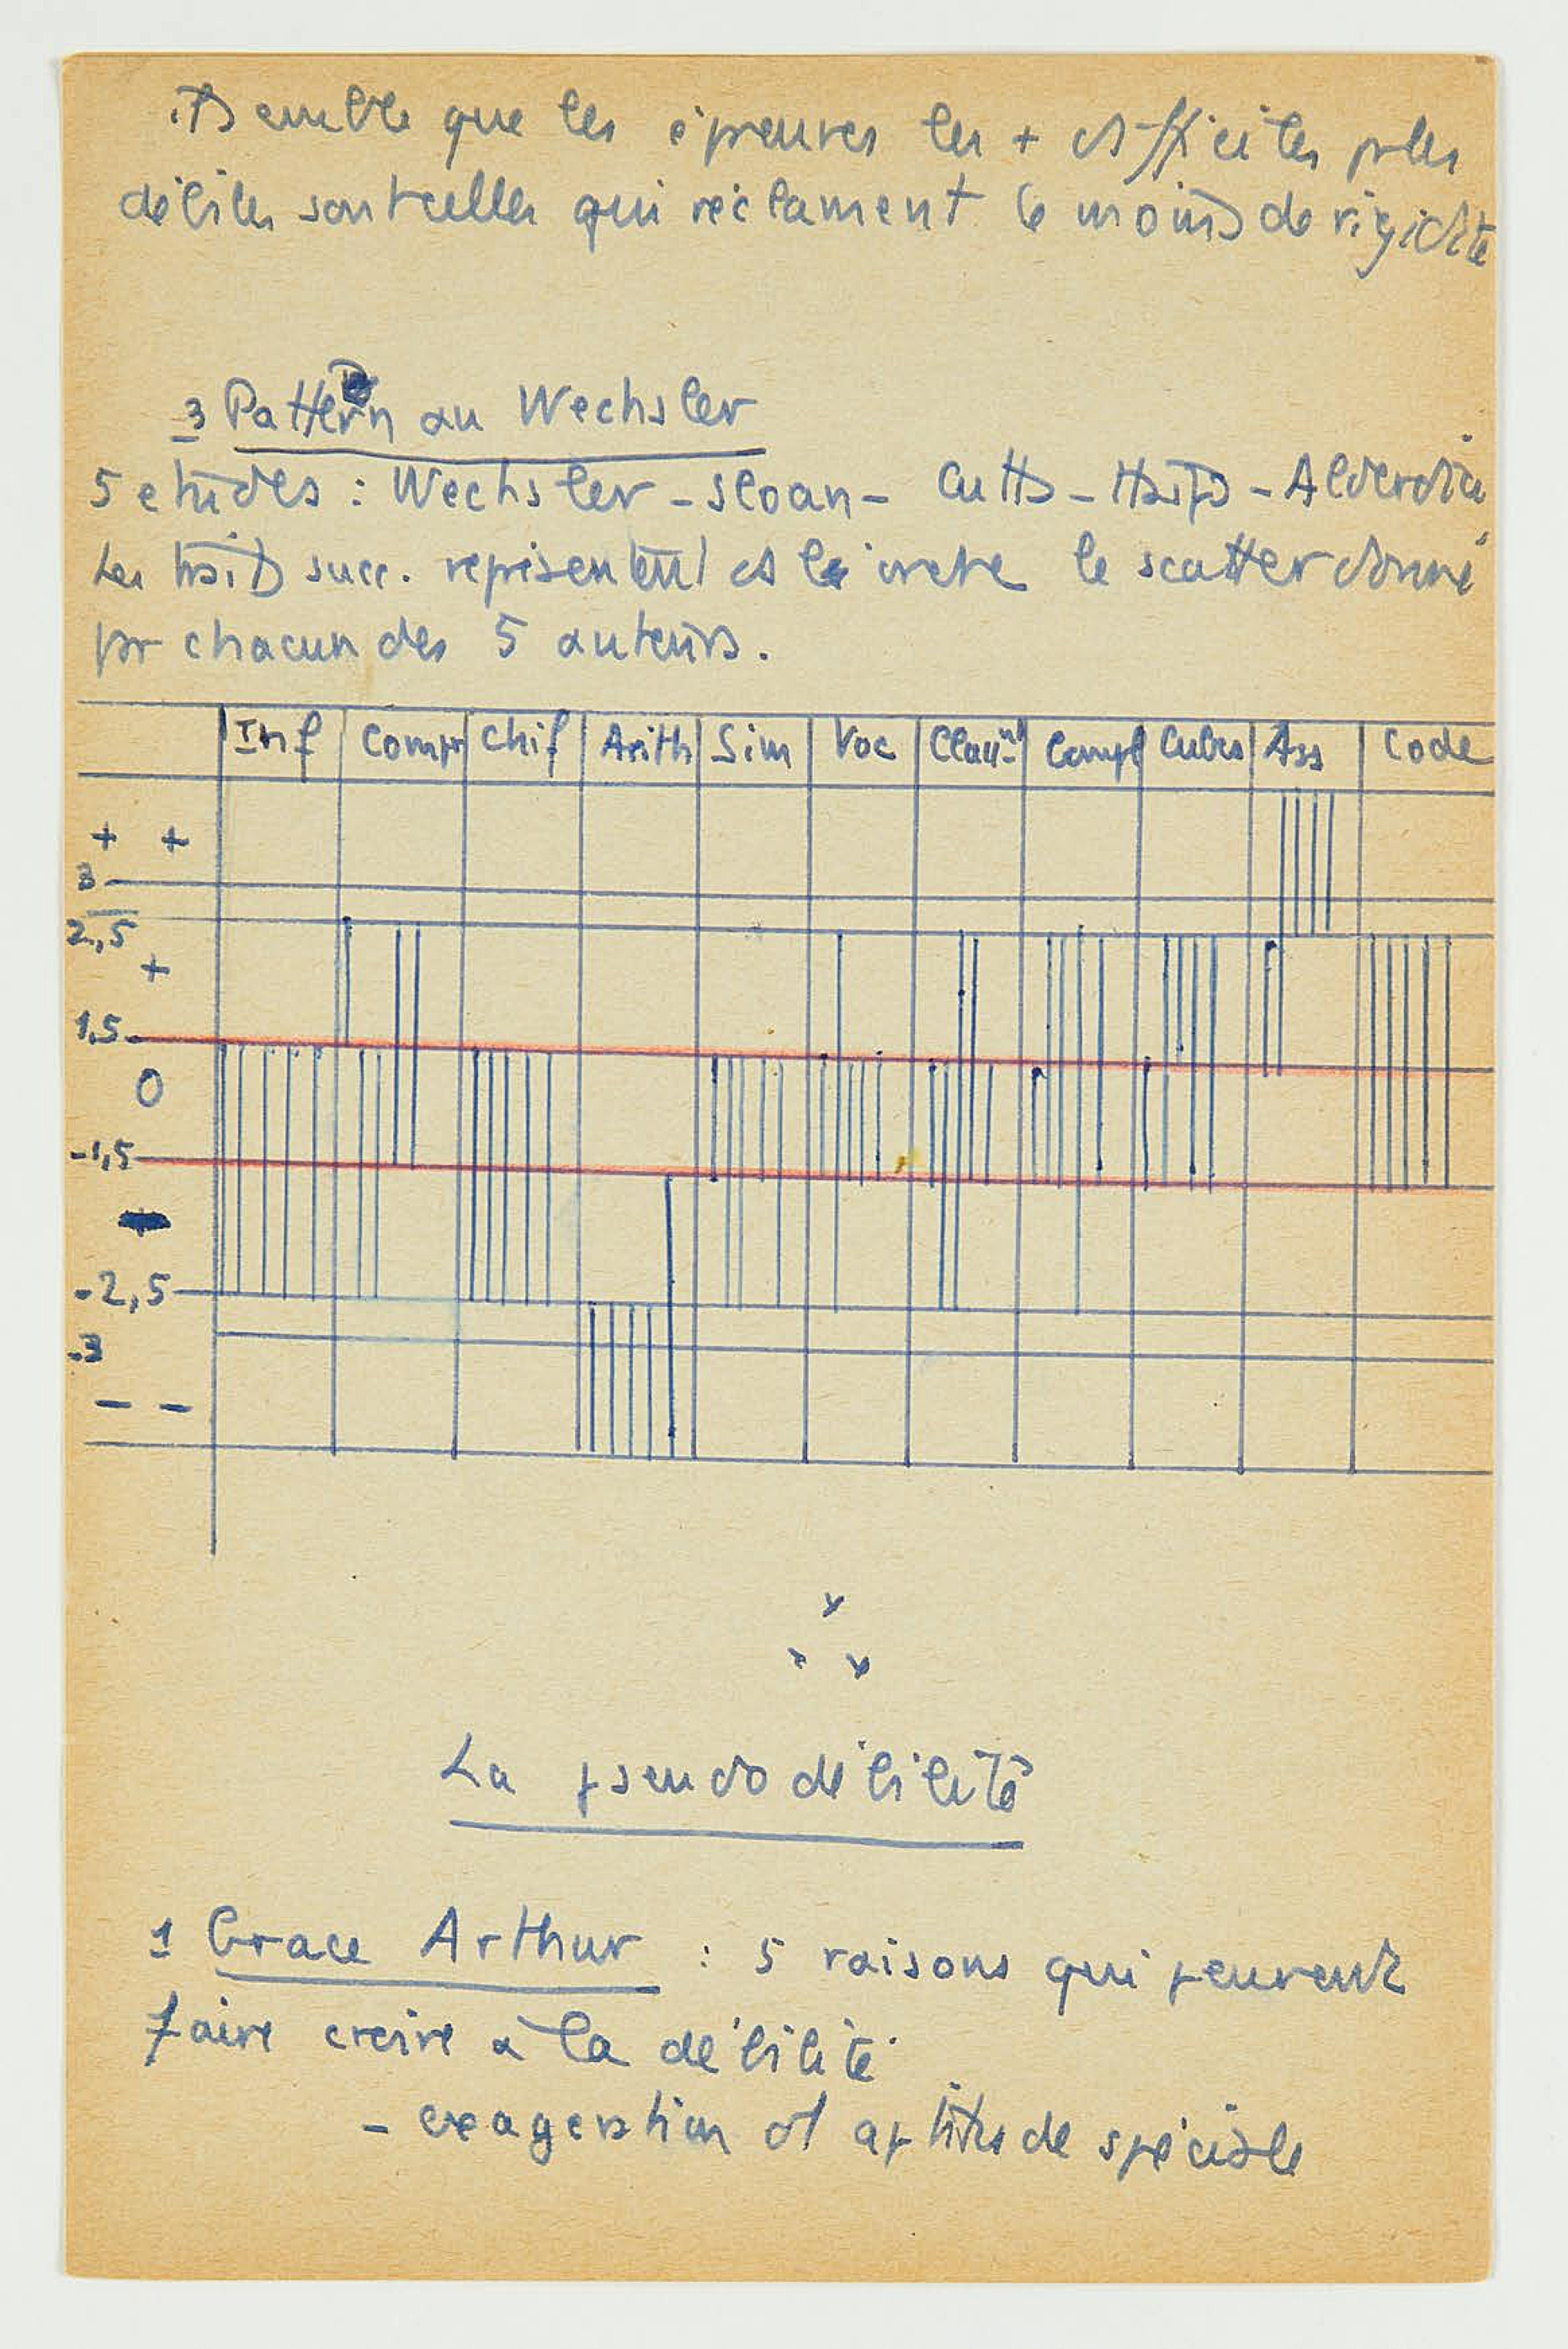 il semble que les épreuves les + difficiles pr les
débiles sont celles qui réclament le moins de rigidité
3 Pattern au Wechsler
5 etudes : Wechsler - Sloan - Cutts - - Alderdice
Les traits succ. représentent ds l'ordre le scatter donné
par chacun des 5 auteurs.
Inf Compr Chif Arith Sim Voc Compl Cubes Ass Code
+ +
3
2,5
+
1,5
0
-1,5
-
-2,5
-3
- -
La pseudo débilité
1 Grace Arthur : 5 raisons qui peuvent
faire croire à la débilité
- exageration d'aptitude spéciale